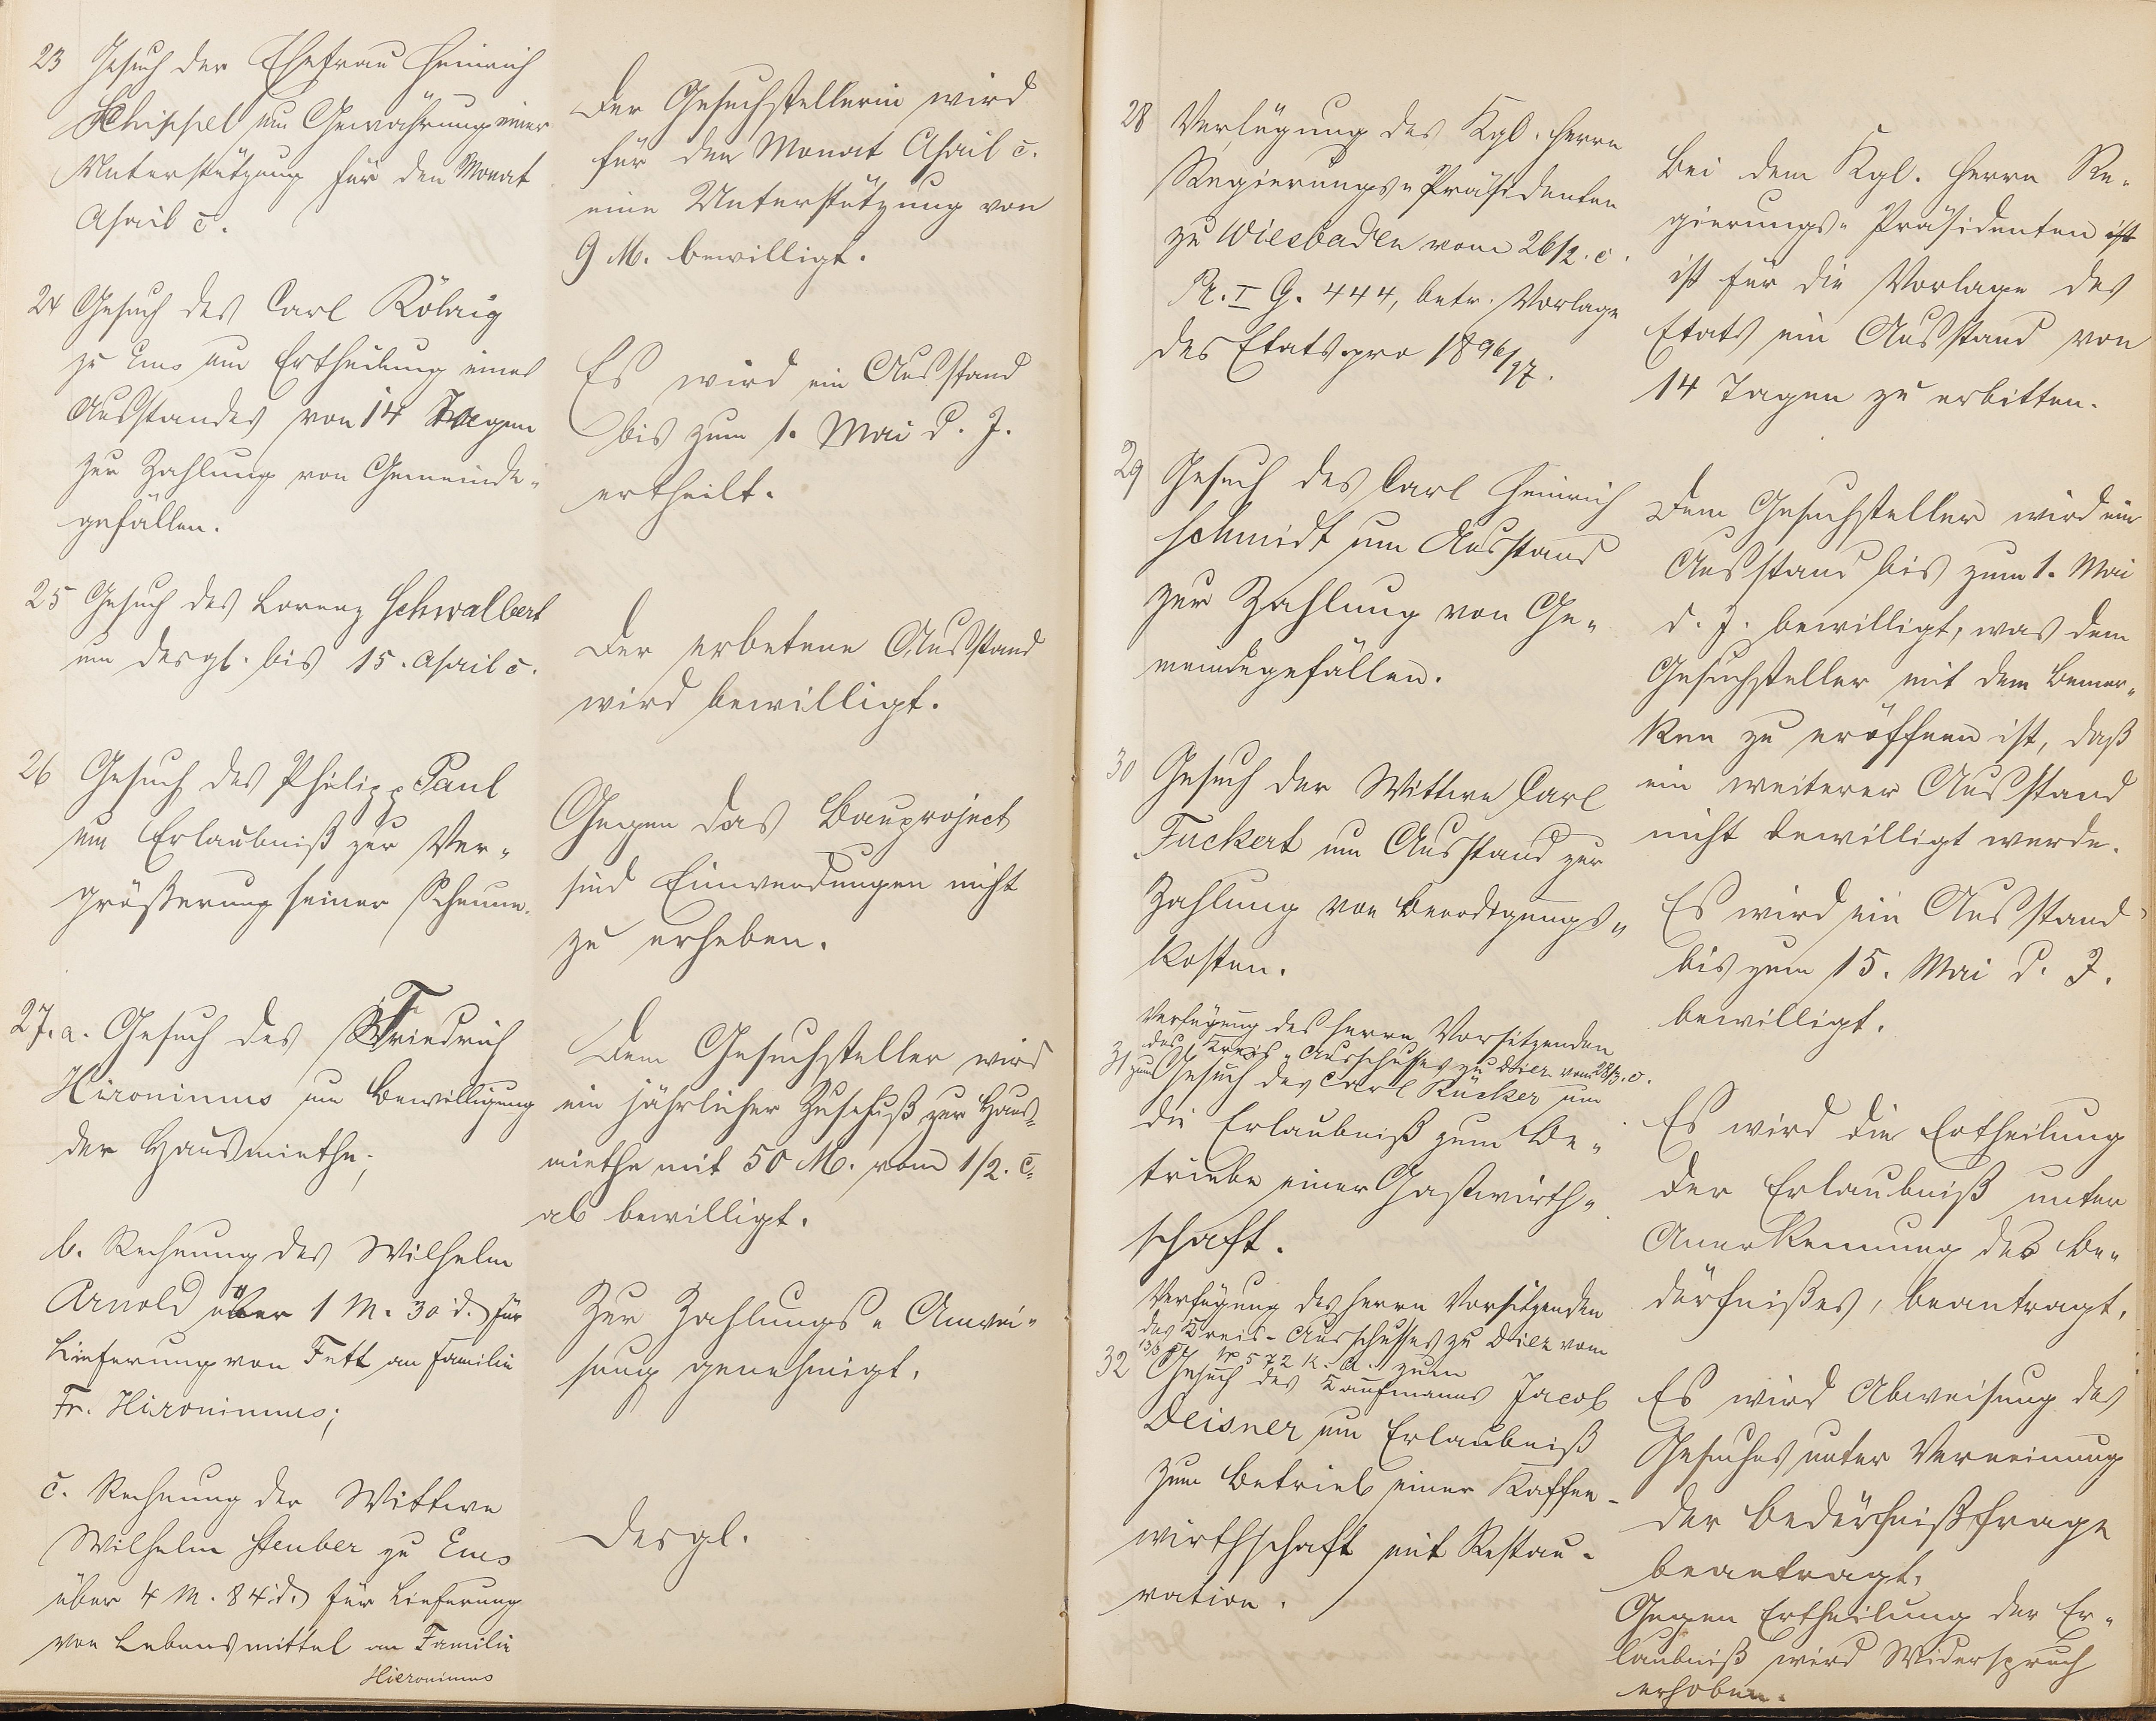 23 Gesuch der Ehefrau Heinrich
Schippel um Gewährung einer
Unterstützung für den Monat
April c.
Der Gesuchstellerin wird
für den Monat April c.
eine Unterstützung von
9 M. bewilligt.
24 Gesuch des Carl
zu Ems um Ertheilung eines
Ausstandes von 14 Tagen
zur Zahlung von Gemeinde-
gefällen.
Es wird ein Ausstand
bis zum 1. Mai d. J.
ertheilt.
25 Gesuch des Lorenz Schwalbert
um desgl. bis 15. April c.
Der erbetene Ausstand
wird bewilligt.
26 Gesuch des Philipp Paul
um Erlaubniß zur Ver-
größerung seiner Scheune.
Gegen das Bauproject
sind Einwendungen nicht
zu erheben.
27. a. Gesuch des Friedrich
Hironimus um Bewilligung
der Hausmiethe;
Dem Gesuchsteller wird
ein jährlicher Zuschuß zur Haus-
miethe mit 50 M. vom 1/2. c.
ab bewilligt.
b. Rechnung des Wilhelm
Arnold über 1 M. 30 d. für
Lieferung von Fett an Familie
Fr. Hironimus;
Zur Zahlungs-Anwei-
sung genehmigt.
c. Rechnung der Wittwe
Wilhelm Steuber zu Ems
über 4 M. 84 d. für Lieferung
von Lebensmittel an Familie
Hieronimus
Desgl.
28 Verfügung des Kgl. Herrn
Regierungs-Präsidenten
zu Wiesbaden vom 26/2. c.
Pr. I G. 444, betr. Vorlage
des Etats pro 1896/97.
Bei dem Kgl. Herrn Re-
gierungs-Präsidenten ist
ist für die Vorlage des
Etats ein Ausstand von
14 Tagen zu erbitten.
29 Gesuch des Carl Heinrich
Schmidt um Ausstand
zur Zahlung von Ge-
meindegefällen.
Dem Gesuchsteller wird ein
Ausstand bis zum 1. Mai
d. J. bewilligt, was dem
Gesuchsteller mit dem Bemer-
ken zu eröffnen ist, daß
ein weiterer Ausstand
nicht bewilligt werde.
30 Gesuch der Wittwe Carl
Fuckert um Ausstand zur
Zahlung von Beerdigungs-
kosten.
Es wird ein Ausstand
bis zum 15. Mai d. J.
bewilligt.
Verfügung des Herrn Vorsitzenden
des Kreis-Ausschusses zu Diez vom 28/3. c.
31 zum Gesuch des Carl Rücker um
die Erlaubniß zum Be-
triebe einer Gastwirth-
schaft.
Es wird die Ertheilung
der Erlaubniß unter
Anerkennung des Be-
dürfnißes, beantragt.
Verfügung des Herrn Vorsitzenden
des Kreis-Ausschusses zu Diez vom
No 572 K. A. zum
32 Gesuch des Kaufmanns Jacob
Deisner um Erlaubniß
zum Betrieb einer Kaffee-
wirthschaft mit Restau-
ration.
Es wird Abweisung des
Gesuches unter Verneinung
der Bedürfnißfrage
beantragt.
Gegen Ertheilung der Er-
laubniß wird Widerspruch
erhoben.